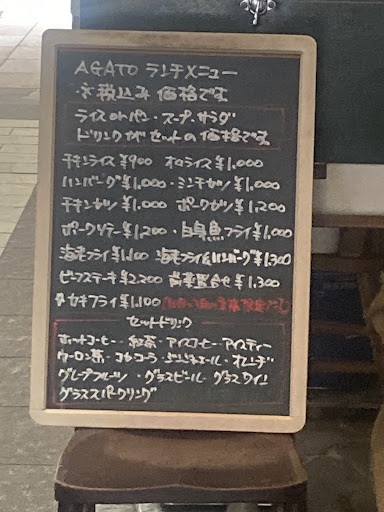 AGATO ランチメニュー
☆税込み価格です
ライスorパン・スープ・サラダ
ドリンクがセットの価格です
チキンライス¥900 オムライス¥1,000
ハンバーグ¥1,000・ミンチカツ¥1,000
チキンカツ¥1,000 ポークカツ¥1,200
ポークソテー¥1,200・白身魚フライ¥1,000
海老フライ¥1,100 海老フライ&ハンバーグ¥1,300
ビーフステーキ¥2,200 盛合せ¥1,300
カキフライ¥1,100
セットドリンク
ホットコーヒー・紅茶・アイスコーヒー・アイスティー
ウーロン茶・コカコーラ・ジンジャエール・オレンヂ
グレープフルーツ・グラスビール・グラスワイン
グラススパークリング